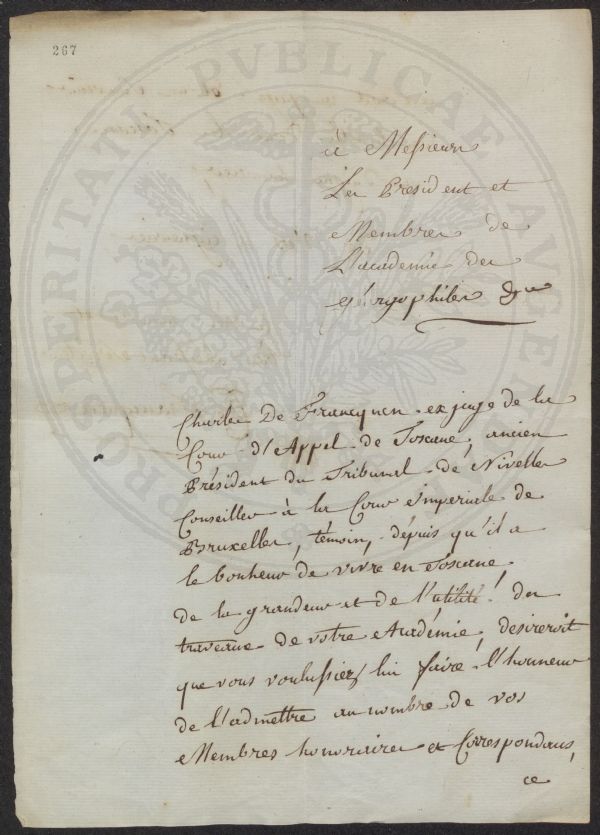 267
PROSPERITATI PUBLICAE AUGENDAE
à Messieurs
Les President et
Membres de
L'academie des
géorgophiles &ca
Charles De Francquen ex juge de la
Cour d'Appel de Toscane, ancien
Président du Tribunal de Nivelles
Conseiller à la Cour Imperiale de
Bruxelles, témoin, dépuis qu'il a
le bonheur de vivre en Toscane,
de la grandeur et de l'utilité des
travaux de votre Académie, desireroit
que vous voulussiez lui faire l'honneur
de l'admettre au nombre de vos
Membres honoraires et Correspondans,
ce